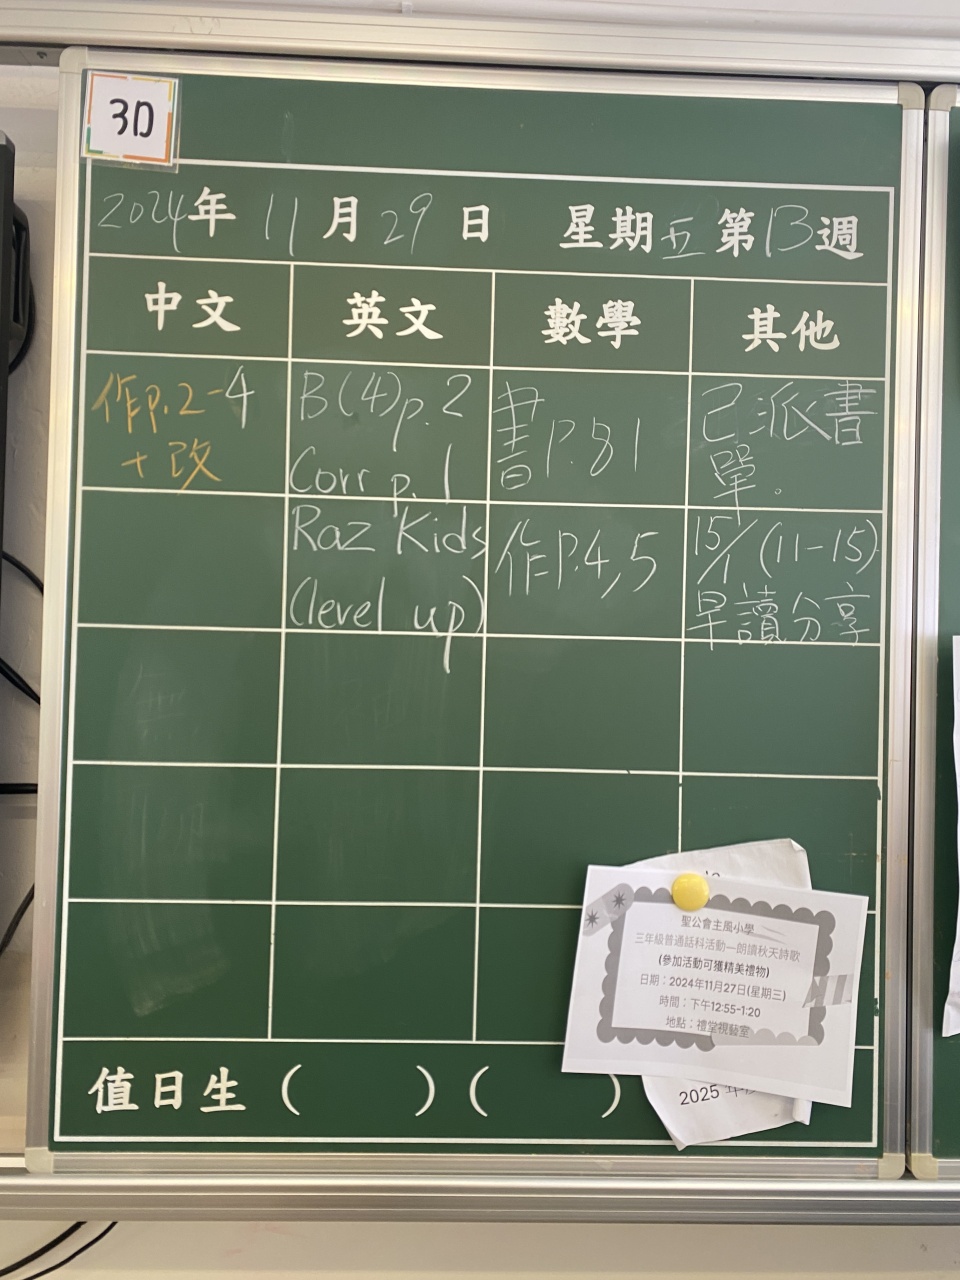 3D
2024年 11月29日 星期五 第13週
中文 英文 數學 其他
作p.2-4
+改
B(4)p.2
Corr p.1
書P.81
已派書
單。
Raz Kids
(level up)
作P.4,5
15/1 (11-15)
早讀分享
聖公會主風小學
三年級普通話科活動—朗讀秋天詩歌
(參加活動可獲精美禮物)
日期：2024年11月27日(星期三)
時間：下午12:55-1:20
地點：禮堂視藝室
2025 年
值日生 (    ) (    )